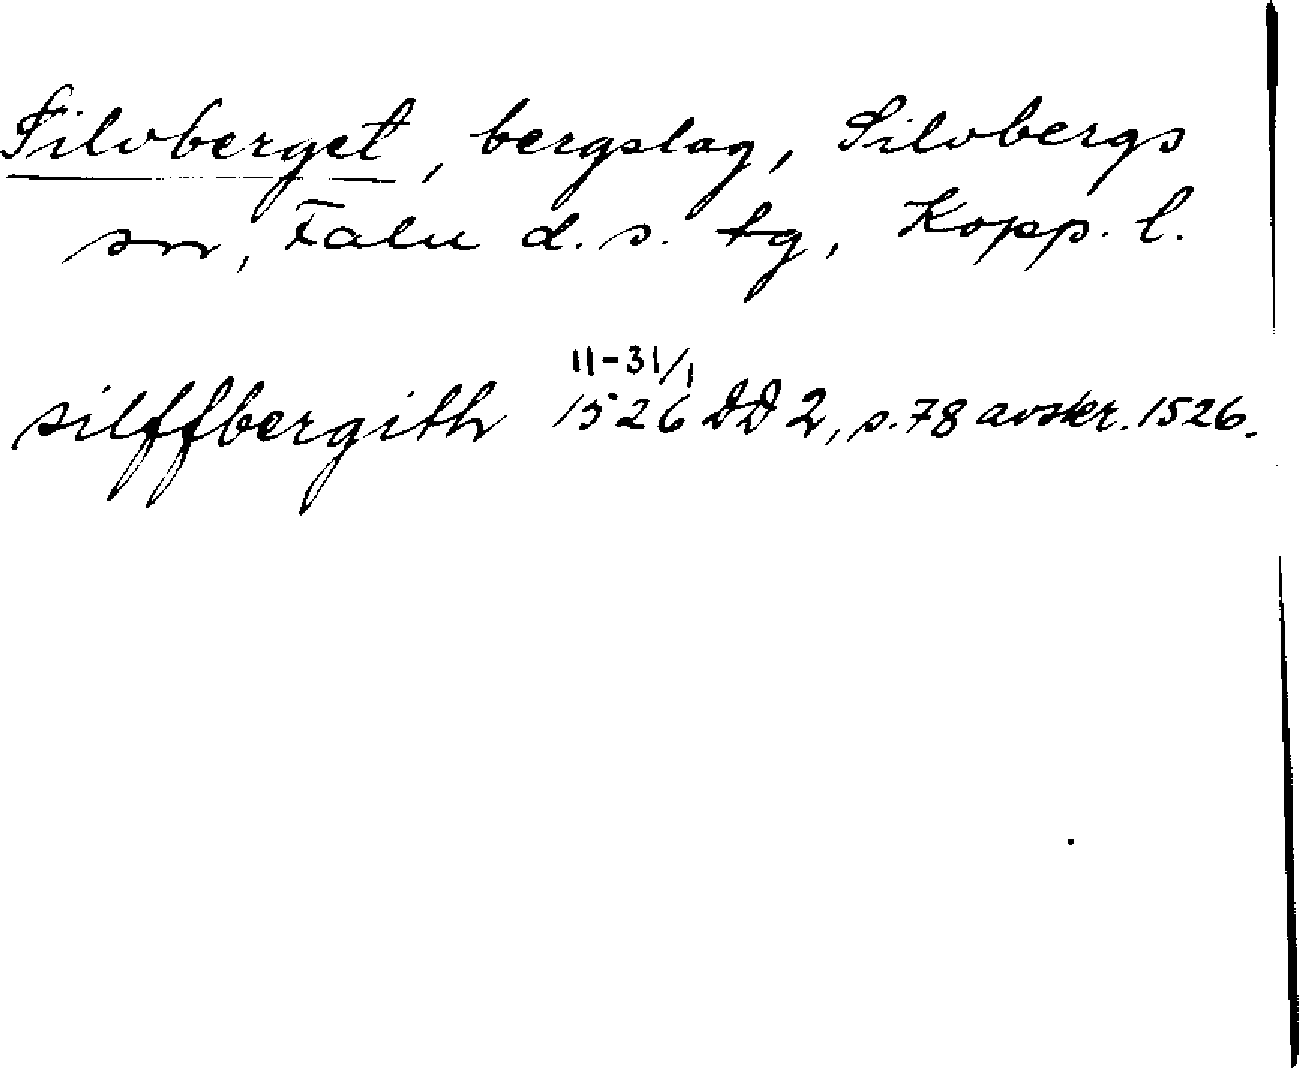 Silvberget, bergslag, Silvbergs
sn, Falu d. s. tg, Kopp. l.
11-31/1
silffbergith 1526 DD 2, s. 78 avskr. 1526.